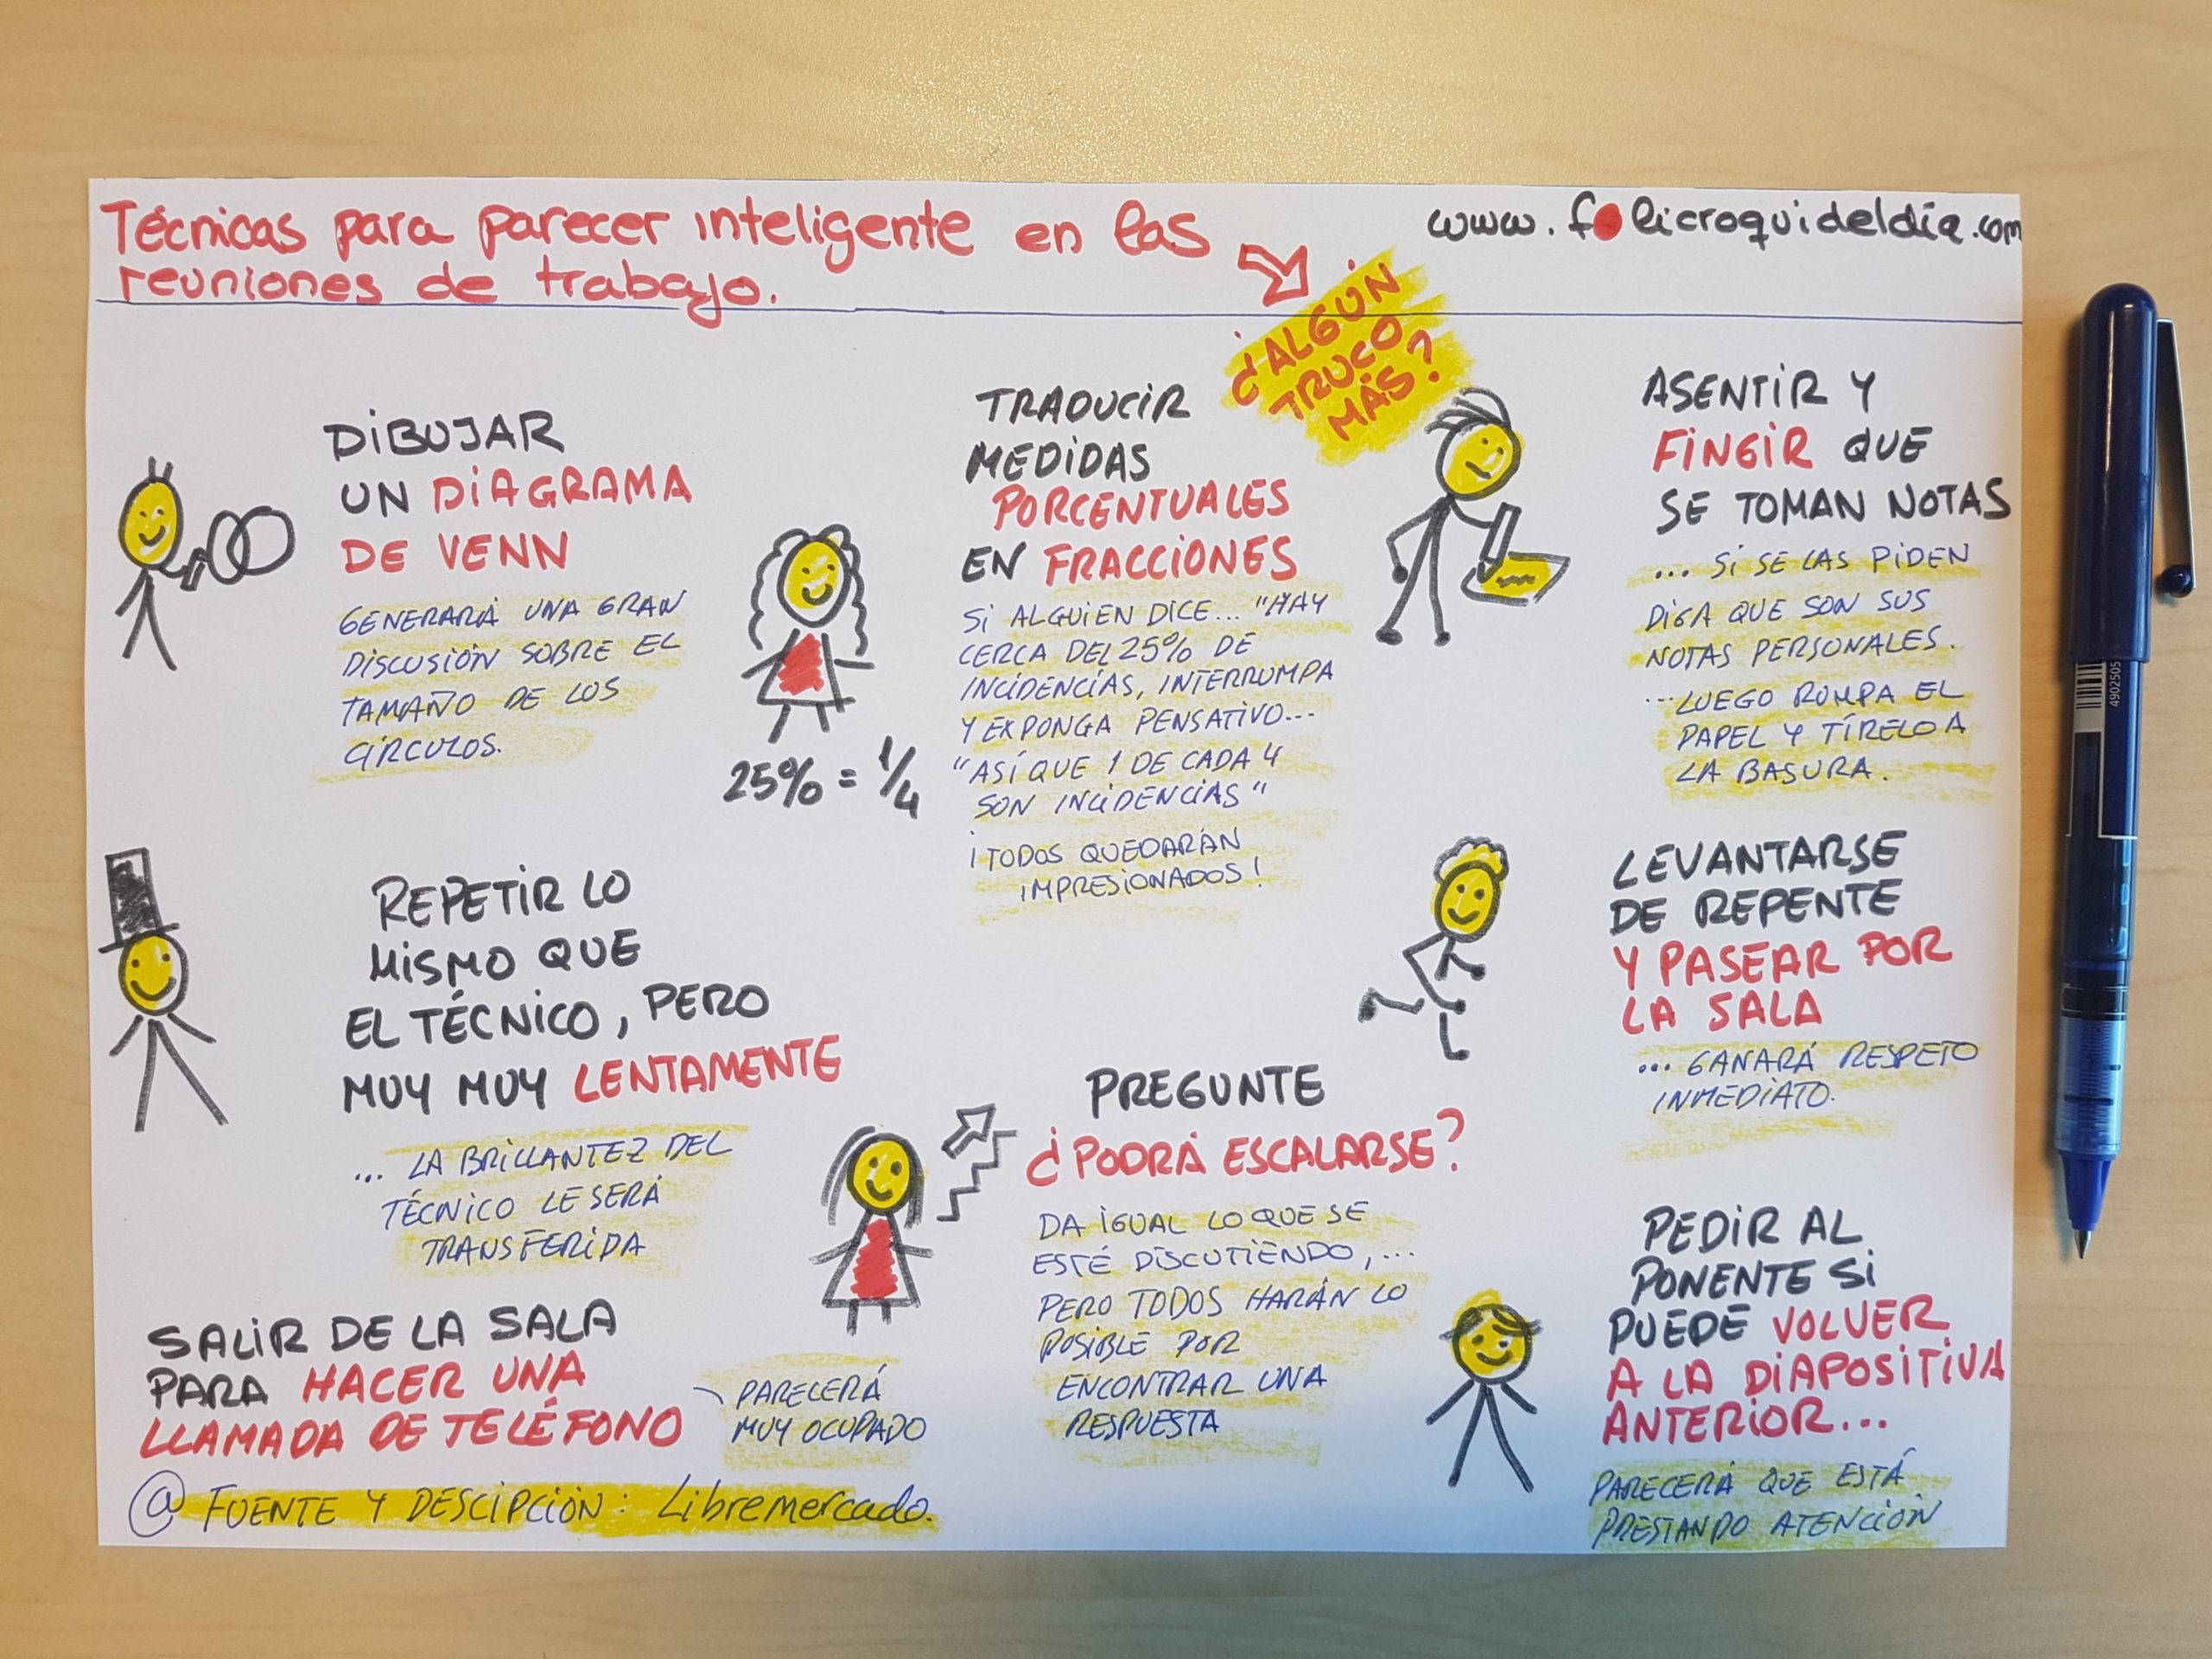 Técnicas para parecer inteligente en las
reuniones de trabajo.
www.folicroquideldia.com
¿ALGÚN
TRUCO
MÁS?
DIBUJAR
UN DIAGRAMA
DE VENN
GENERARÁ UNA GRAN
DISCUSIÓN SOBRE EL
TAMAÑO DE LOS
CÍRCULOS.
TRADUCIR
MEDIDAS
PORCENTUALES
EN FRACCIONES
SI ALGUIEN DICE... "HAY
CERCA DEL 25% DE
INCIDENCIAS, INTERRUMPA
Y EXPONGA PENSATIVO...
"ASÍ QUE 1 DE CADA 4
SON INCIDENCIAS"
¡TODOS QUEDARÁN
IMPRESIONADOS!
25% = 1/4
ASENTIR Y
FINGIR QUE
SE TOMAN NOTAS
... SI SE LAS PIDEN
DIGA QUE SON SUS
NOTAS PERSONALES.
... LUEGO ROMPA EL
PAPEL Y TÍRELO A
LA BASURA.
REPETIR LO
MISMO QUE
EL TÉCNICO, PERO
MUY MUY LENTAMENTE
... LA BRILLANTEZ DEL
TÉCNICO LE SERÁ
TRANSFERIDA
LEVANTARSE
DE REPENTE
Y PASEAR POR
LA SALA
... GANARÁ RESPETO
INMEDIATO.
PREGUNTE
¿PODRÁ ESCALARSE?
DA IGUAL LO QUE SE
ESTÉ DISCUTIENDO,...
PERO TODOS HARÁN LO
POSIBLE POR
ENCONTRAR UNA
RESPUESTA
SALIR DE LA SALA
PARA HACER UNA
LLAMADA DE TELÉFONO
PARECERÁ
MUY OCUPADO
PEDIR AL
PONENTE SI
PUEDE VOLVER
A LA DIAPOSITIVA
ANTERIOR...
PARECERÁ QUE ESTÁ
PRESTANDO ATENCIÓN
@ FUENTE Y DESCIPCIÓN: Libremercado.
4902505